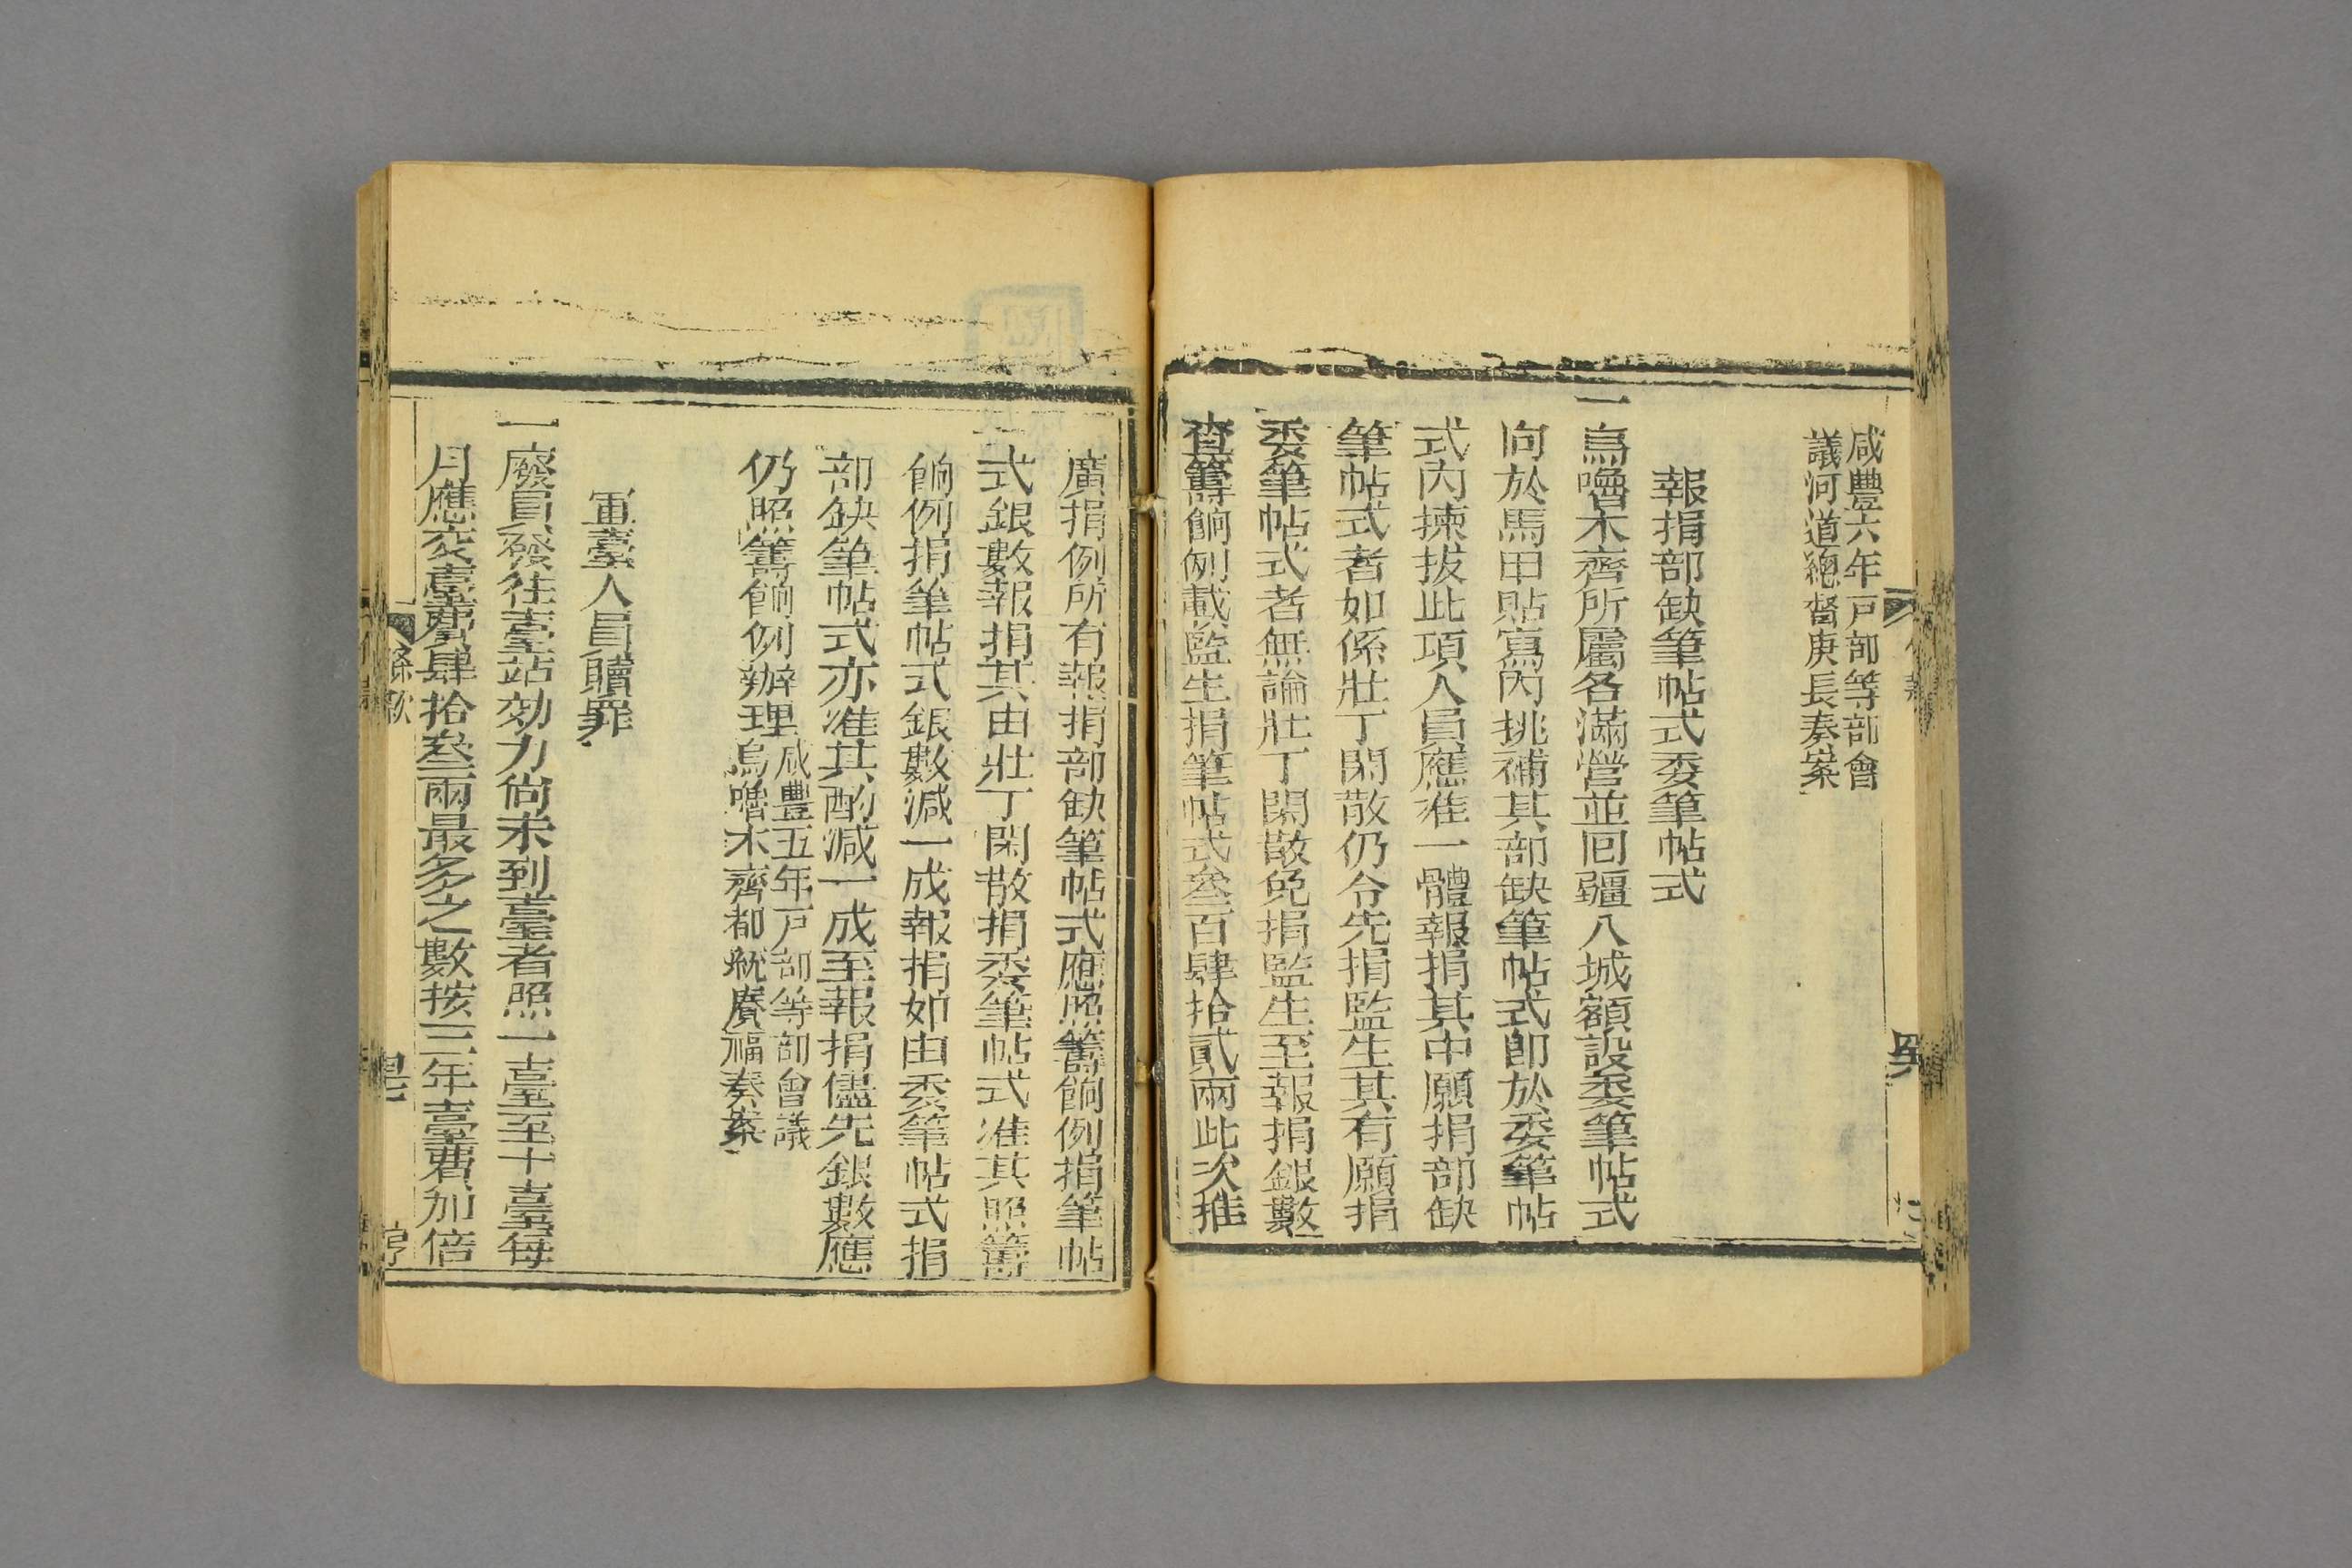 咸豐六年戸部等部會
議河道總督庚長奏案
報捐部缺筆帖式委筆帖式
一烏嚕木齊所屬各滿營並囘疆八城額設委筆帖式
向於馬甲貼寫內挑補其部缺筆帖式卽於委筆帖
式內揀拔此項人員應准一體報捐其中願捐部缺
筆帖式者如係壯丁閑散仍令先捐監生其有願捐
委筆帖式者無論壯丁閑散免捐監生至報捐銀數
查籌餉例載監生捐筆帖式叁百肆拾貳兩此次推
廣捐例所有報捐部缺筆帖式應照籌餉例捐筆帖
式銀數報捐其由壯丁閑散捐委筆帖式准其照籌
餉例捐筆帖式銀數減一成報捐如由委筆帖式捐
部缺筆帖式亦准其酌減一成至報捐儘先銀數應
仍照籌餉例辦理咸豐五年戸部等部會議
烏嚕木齊都統賡福奏案
軍臺人員贖罪
一廢員發往臺站効力尙未到臺者照一臺至十臺每
月應交臺費肆拾叁兩最多之數按三年臺費加倍
條欵